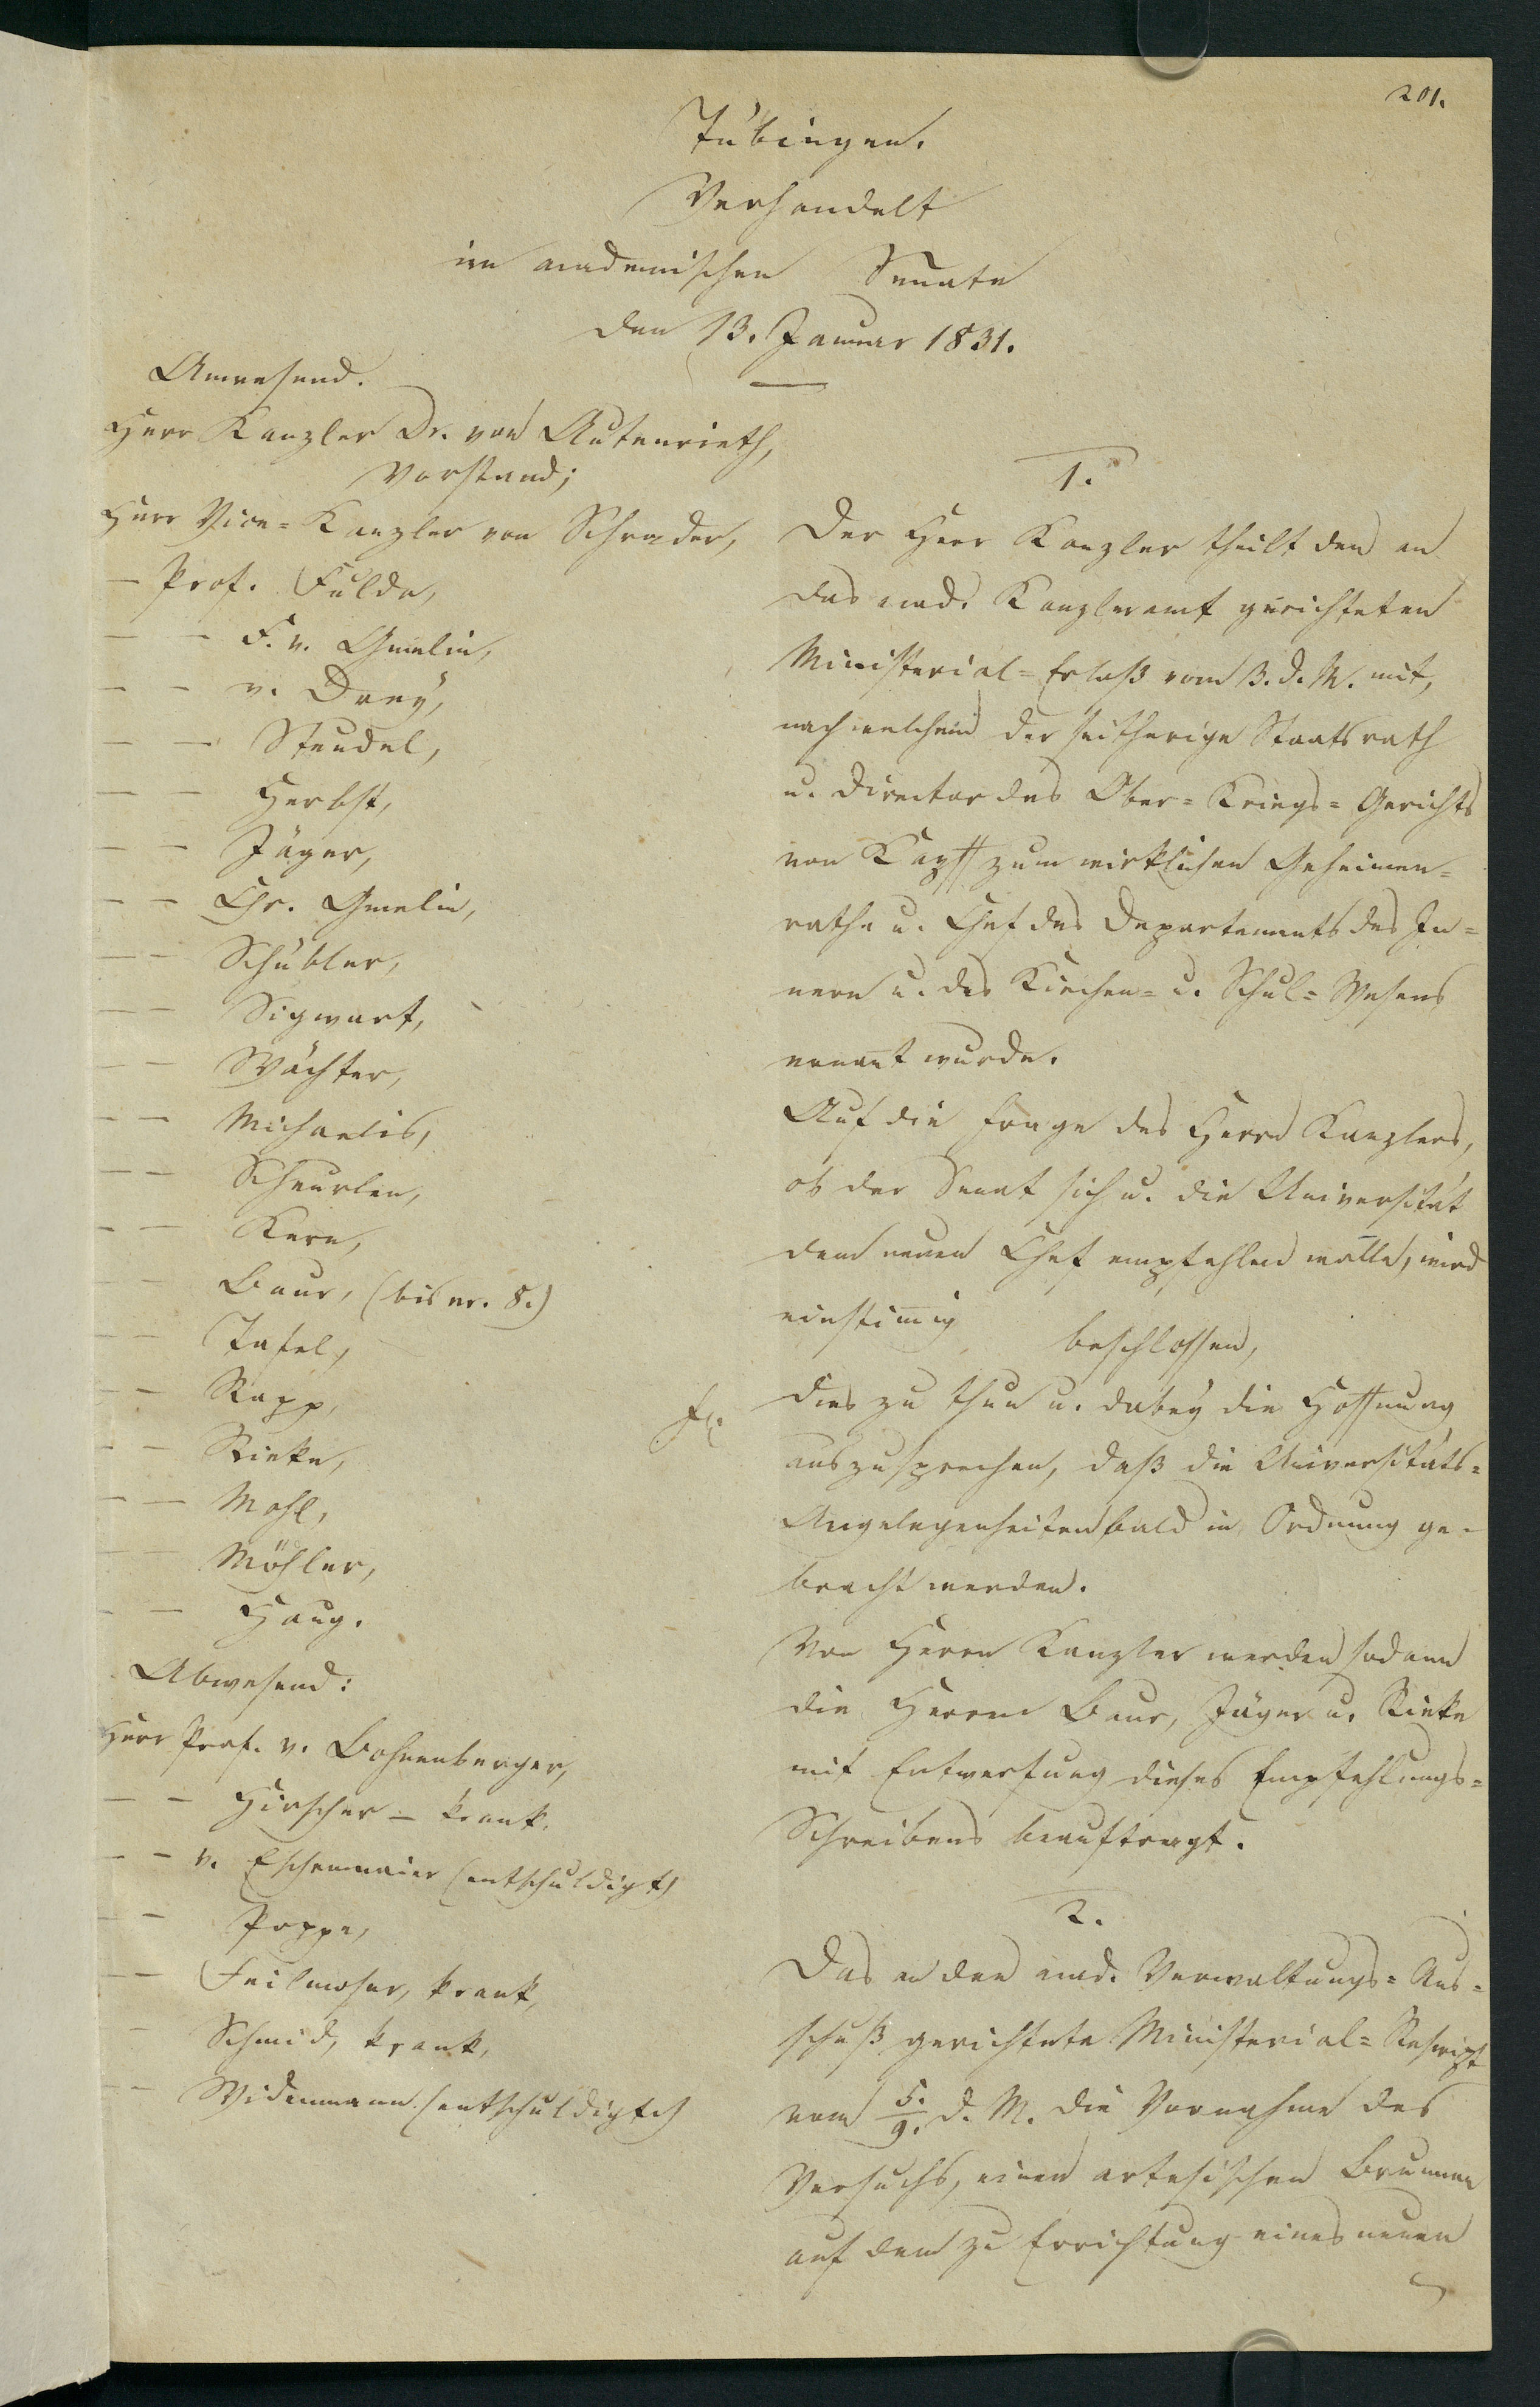 201.
Tübingen.
Verhandelt
im academischen Senate
den 13. Januar 1831.
Anwesend.
Herr Kanzler Dr. von Autenrieth,
Vorstand;
Herr Vice-Kanzler von Schrader,
— Prof. Fulda,
— — F. v. Gmelin,
— — v. Drey,
— — Steudel,
— — Herbst,
— — Jäger,
— — Chr. Gmelin,
— — Schübler,
— — Sigwart,
— — Wächter,
— — Michaelis,
— — Scheurlen,
— — Kern,
— — Baur, (bis nr. 8.)
— — Tafel,
— — Rapp,
— — Riecke,
— — Mohl,
— — Möhler,
— — Haug.
Abwesend:
Herr Prof. v. Bohnenberger,
— — Hirscher – krank.
— — v. Eschenmaier (entschuldigt)
— — Poppe,
— — Feilmoser, krank,
— Schmid, krank,
— — Widenmann (entschuldigt)
1.
Der Herr Kanzler theilt den an
das acad. Kanzleramt gerichteten
Ministerial-Erlaß vom 3. d. M. mit,
nach welchem der seitherige Staatsrath
u. Director des Ober-Kriegs-Gerichts
von Kapff zum wirklichen Geheimen-
rathe u. Chef des Departements des In-
nern u. des Kirchen- u. Schul-Wesens
ernant wurde.
Auf die Frage des Herrn Kanzlers,
ob der Senat sich u. die Universität
dem neuen Chef empfehlen wolle, wird
einstimig
beschlossen,
dies zu thun u. dabey die Hoffnung
auszusprechen, daß die Universitäts-
Angelegenheiten bald in Ordnung ge-
bracht werden.
Von Herrn Kanzler werden sodann
die Herren Baur, Jäger u. Riecke
mit Entwerfung dieses Empfehlungs-
Schreibens beauftragt.
2.
Das an den acad. Verwaltungs-Aus-
schuß gerichtete Ministerial-Rescript
vom 5./9. d. M. die Vornahme des
Versuchs, einen artesischen Brunnen
auf dem zu Errichtung eines neuen